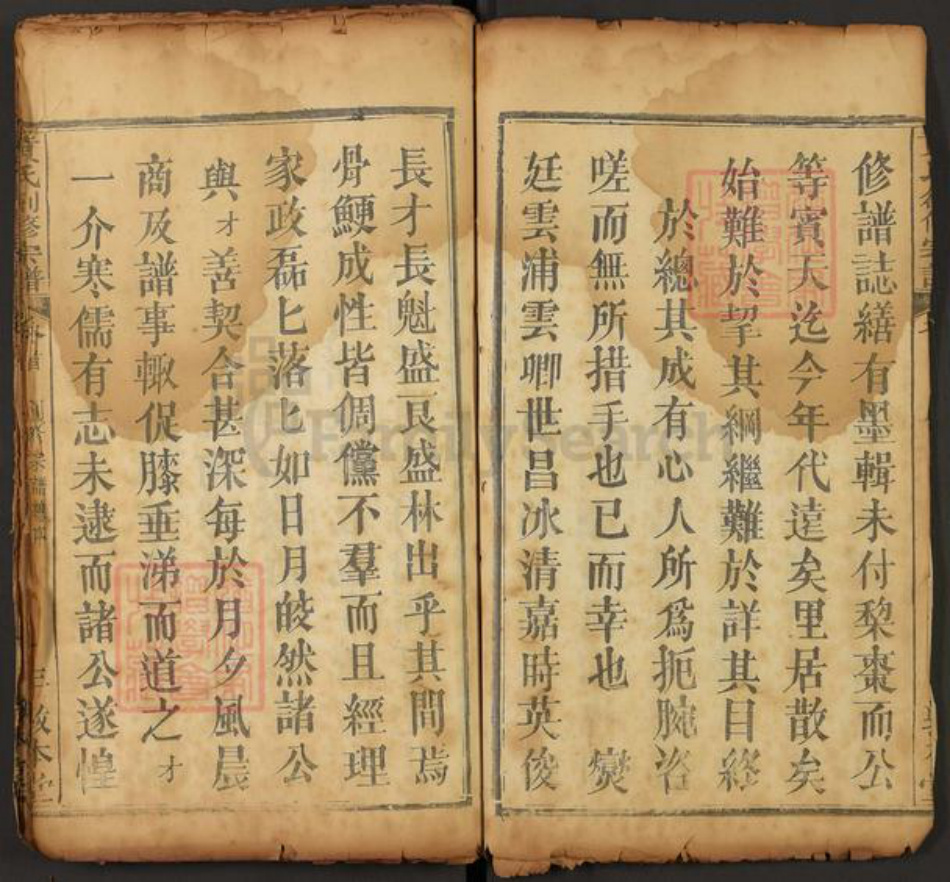 修譜誌繕有墨輯未付棃棗而公
等賓天迄今年代遠矣里居散矣
始難於挈其綱繼難於詳其目終
於總其成有心人所爲扼腕咨
嗟而無所措手也已而幸也 爕
廷雲浦雲卿世昌冰清嘉時英俊
長才長魁盛艮盛林出乎其間焉
骨鯁成性皆倜儻不羣而且經理
家政磊匕落匕如日月皎然諸公
與才善契合甚深每於月夕風晨
商及譜事輙促膝垂涕而道之才
一介寒儒有志未逮而諸公遂惶
氏 修宗譜
敦本堂
FamilySearch